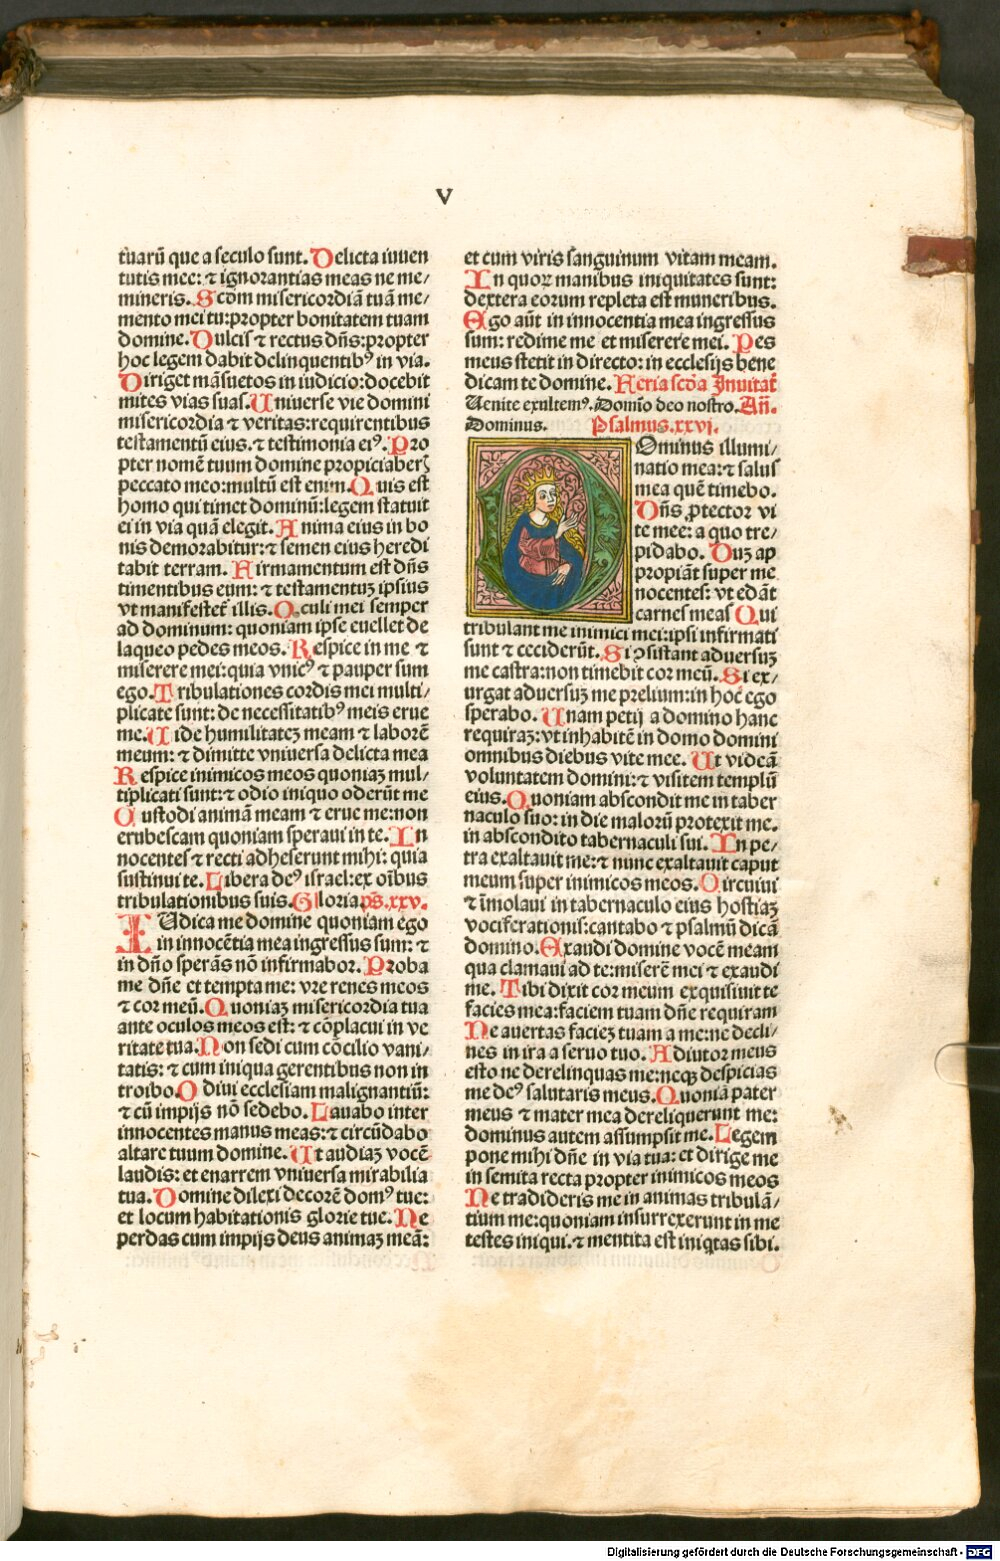 V
tuarū que a seculo sunt. Delicta iuuen
tutis mee: ⁊ ignorantias meas ne me/
mineris. Scdm misericordiā tuā me/
mento mei tu: propter bonitatem tuam
domine. Dulcis ⁊ rectus dn̄s: propter
hoc legem dabit delinquentibꝰ in via.
Diriget māsuetos in iudicio: docebit
mites vias suas. Uniuerse vie domini
misericordia ⁊ veritas: requirentibus
testamentū eius. ⁊ testimonia eiꝰ. Pro
pter nomē tuum domine propiciaberꝭ
peccato meo: multū est enim. Quis est
homo qui timet dominū: legem statuit
ei in via quā elegit. Anima eius in bo
nis demorabitur: ⁊ semen eius heredi
tabit terram. Firmamentum est dn̄s
timentibus eum: ⁊ testamentuꝫ ipsius
vt manifestet᷑ illis. Oculi mei semper
ad dominum: quoniam ipse euellet de
laqueo pedes meos. Respice in me ⁊
miserere mei: quia vnicꝰ ⁊ pauper sum
ego. Tribulationes cordis mei multi/
plicate sunt: de necessitatibꝰ meis erue
me. Uide humilitateꝫ meam ⁊ laborē
meum: ⁊ dimitte vniuersa delicta mea
Respice inimicos meos quoniaꝫ mul/
tiplicati sunt: ⁊ odio iniquo oderūt me
Custodi animā meam ⁊ erue me: non
erubescam quoniam speraui in te. In
nocentes ⁊ recti adheserunt mihi: quia
sustinui te. Libera deꝰ israel: ex oībus
tribulationibus suis. Gloria. ps̄. xxv.
IUdica me domine quoniam ego
in innocētia mea ingressus sum: ⁊
in dn̄o sperās nō infirmabor. Proba
me dn̄e et tempta me: vre renes meos
⁊ cor meū. Quoniaꝫ misericordia tua
ante oculos meos est: ⁊ cōplacui in ve
ritate tua. Non sedi cum cōcilio vani/
tatis: ⁊ cum iniqua gerentibus non in
troibo. Odiui ecclesiam malignantiū:
⁊ cū impijs nō sedebo. Lauabo inter
innocentes manus meas: ⁊ circūdabo
altare tuum domine. Ut audiaꝫ vocē
laudis: et enarrem vniuersa mirabilia
tua. Domine dilexi decorē domꝰ tue:
et locum habitationis glorie tue. Ne
perdas cum impijs deus animaꝫ meā:
et cum viris sanguinum vitam meam.
In quoꝝ manibus iniquitates sunt:
dextera eorum repleta est muneribus.
Ego aūt in innocentia mea ingressus
sum: redime me et miserere mei. Pes
meus stetit in directo: in ecclesijs bene
dicam te domine. Feria scd̄a Inuitat᷑
Uenite exultemꝰ. Domīo deo nostro. An̄.
Dominus. Psalmus. xxvj.
DOminus illumi/
natio mea: ⁊ salus
mea quē timebo.
Dn̄s ꝓtector vi
te mee: a quo tre/
pidabo. Duꝫ ap
propiāt super me
nocentes: vt edāt
carnes meas Qui
tribulant me inimici mei: ipsi infirmati
sunt ⁊ ceciderūt. Si ꝯsistant aduersuꝫ
me castra: non timebit cor meū. Si ex/
urgat aduersuꝫ me prelium: in hoc ego
sperabo. Unam petij a domino hanc
requiraꝫ: vt inhabitē in domo domini
omnibus diebus vite mee. Ut videā
voluntatem domini: ⁊ visitem templū
eius. Quoniam abscondit me in taber
naculo suo: in die malorū protexit me.
in abscondito tabernaculi sui. In pe/
tra exaltauit me: ⁊ nunc exaltauit caput
meum super inimicos meos. Circuiui
⁊ īmolaui in tabernaculo eius hostiaꝫ
vociferationis: cantabo ⁊ psalmū dicā
domino. Exaudi domine vocē meam
qua clamaui ad te: miserē mei ⁊ exaudi
me. Tibi dixit cor meum exquisiuit te
facies mea: faciem tuam dn̄e requiram
Ne auertas facieꝫ tuam a me: ne decli/
nes in ira a seruo tuo. Adiutor meus
esto ne derelinquas me: neqꝫ despicias
me deꝰ salutaris meus. Quoniā pater
meus ⁊ mater mea dereliquerunt me:
dominus autem assumpsit me. Legem
pone mihi dn̄e in via tua: et dirige me
in semita recta propter inimicos meos
Ne tradideris me in animas tribulā/
tium me: quoniam insurrexerunt in me
testes iniqui. ⁊ mentita est iniq̄tas sibi.
Digitalisierung gefördert durch die Deutsche Forschungsgemeinschaft - DFG